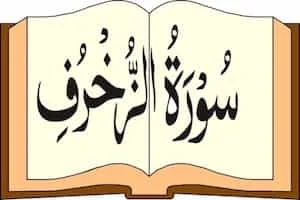 سُورَةُ الزُّخْرُفِ